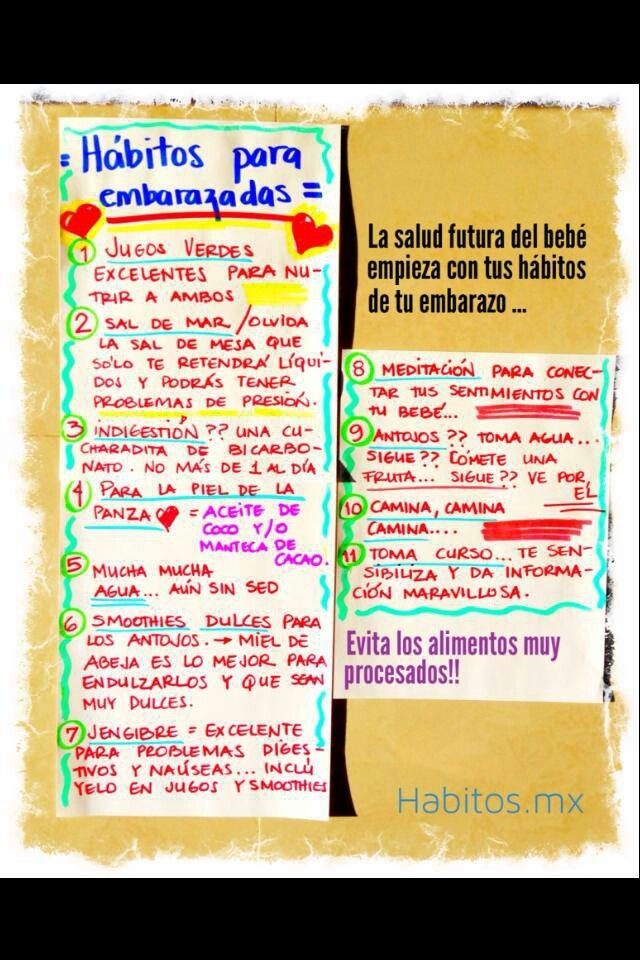 = Hábitos para
embarazadas =
1 JUGOS VERDES
EXCELENTES PARA NU-
TRIR A AMBOS
2 SAL DE MAR / OLVIDA
LA SAL DE MESA QUE
SÓLO TE RETENDRÁ LÍQUI-
DOS Y PODRÁS TENER
PROBLEMAS DE PRESIÓN.
3 INDIGESTIÓN ?? UNA CU-
CHARADITA DE BICARBO-
NATO. NO MÁS DE 1 AL DÍA
4 PARA LA PIEL DE LA
PANZA = ACEITE DE
COCO Y/O
MANTECA DE
CACAO.
5 MUCHA MUCHA
AGUA... AÚN SIN SED
6 SMOOTHIES DULCES PARA
LOS ANTOJOS. → MIEL DE
ABEJA ES LO MEJOR PARA
ENDULZARLOS Y QUE SEAN
MUY DULCES.
7 JENGIBRE = EXCELENTE
PARA PROBLEMAS DIGES-
TIVOS Y NAÚSEAS... INCLÚ
YELO EN JUGOS Y SMOOTHIES
La salud futura del bebé
empieza con tus hábitos
de tu embarazo ...
8 MEDITACIÓN PARA CONEC-
TAR TUS SENTIMIENTOS CON
TU BEBÉ...
9 ANTOJOS ?? TOMA AGUA...
SIGUE ?? CÓMETE UNA
FRUTA... SIGUE ?? VE POR
ÉL
10 CAMINA, CAMINA
CAMINA....
11 TOMA CURSO... TE SEN-
SIBILIZA Y DA INFORMA-
CIÓN MARAVILLOSA.
Evita los alimentos muy
procesados!!
Habitos.mx